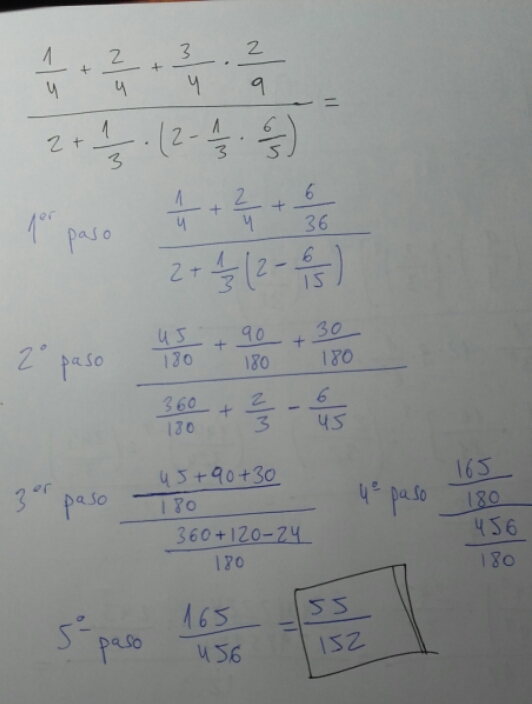 1/4 + 2/4 + 3/4 · 2/9
2 + 1/3 · (2 - 1/3 · 6/5) =
1er paso
1/4 + 2/4 + 6/36
2 + 1/3 (2 - 6/15)
2º paso
45/180 + 90/180 + 30/180
360/180 + 2/3 - 6/45
3er paso
45+90+30/180
360+120-24/180
4º paso
165/180
456/180
5º paso
165/456 = 55/152